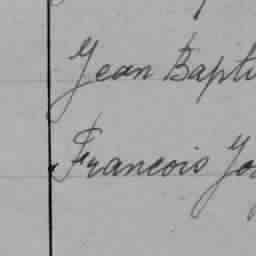 Jean Bapti
Francois Jos